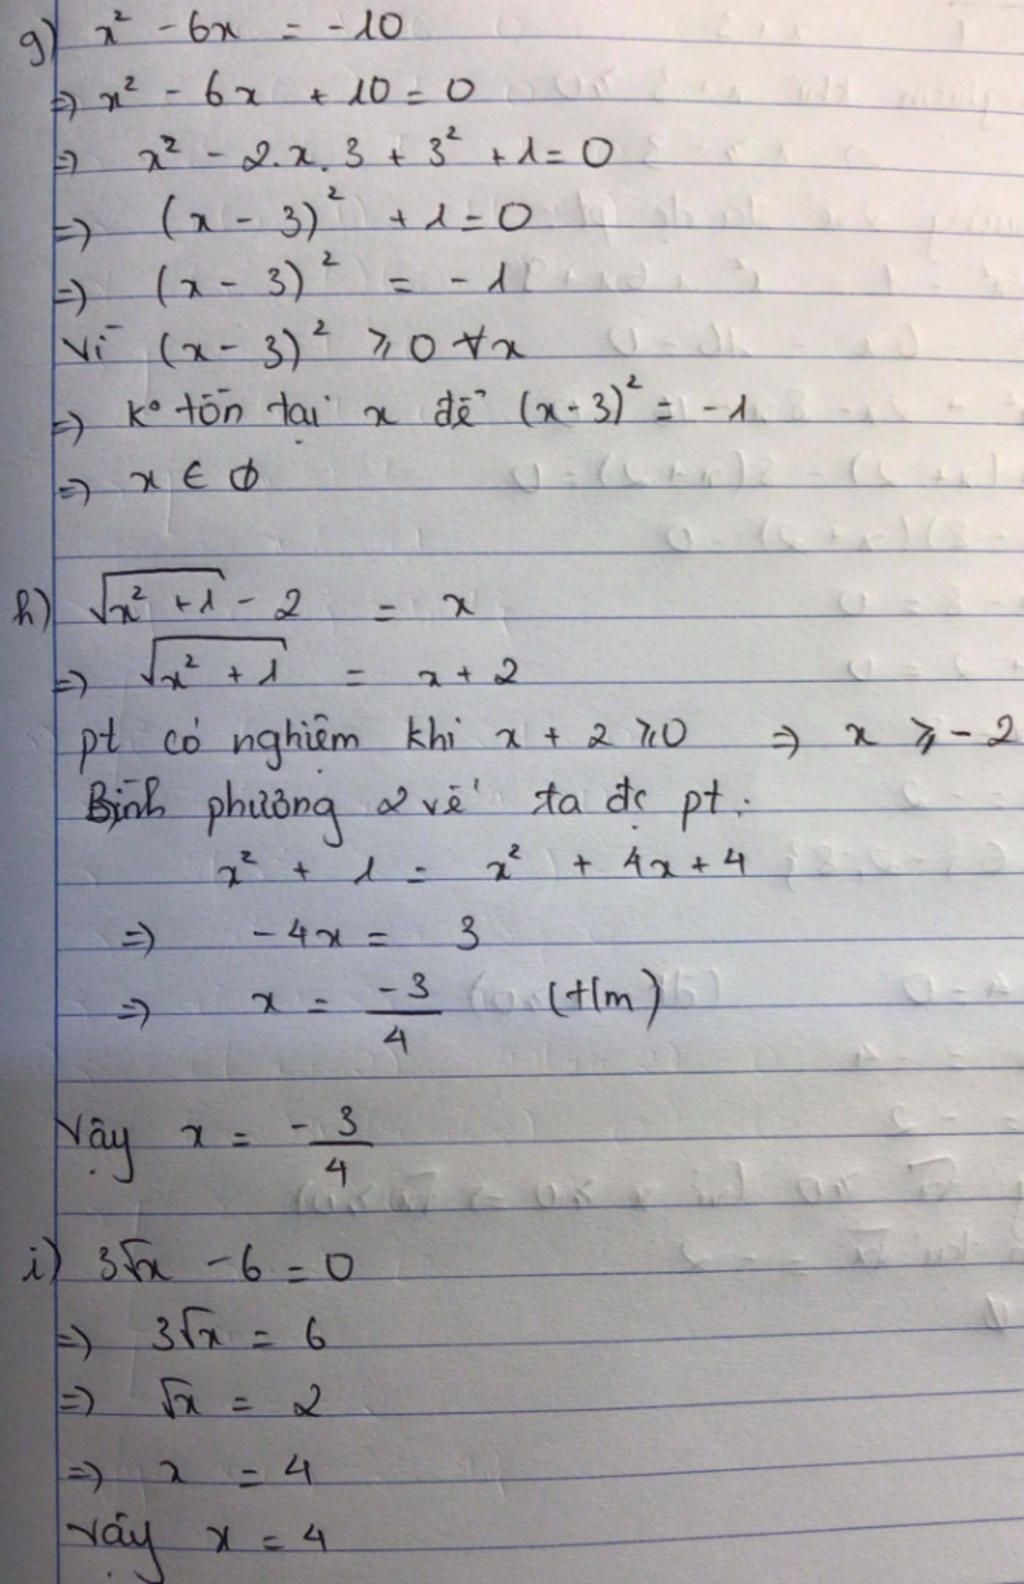 g) x² - 6x = -10
=> x² - 6x + 10 = 0
=> x² - 2.x.3 + 3² + 1 = 0
=> (x - 3)² + 1 = 0
=> (x - 3)² = -1
Vì (x - 3)² ⩾ 0 ∀x
=> k° tồn tại x để (x - 3)² = -1
=> x ∈ ∅
h) √(x² + 1) - 2 = x
=> √(x² + 1) = x + 2
pt có nghiệm khi x + 2 ⩾ 0 => x ⩾ -2
Bình phương 2 vế ta đc pt:
x² + 1 = x² + 4x + 4
=> -4x = 3
=> x = -3/4 (t/m)
Vậy x = -3/4
i) 3√x - 6 = 0
=> 3√x = 6
=> √x = 2
=> x = 4
Vậy x = 4